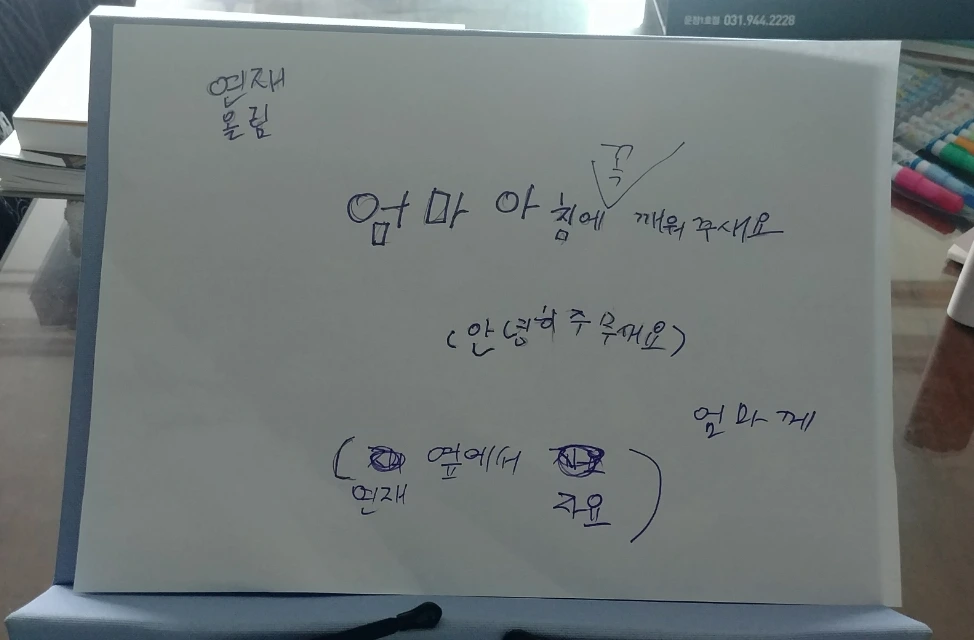 문장1호점 031.944.2228
연재
올림
꼭
엄마 아침에 깨워 주새요
(안녕히 주무새요)
엄마께
( 옆에서
연재 자요 )